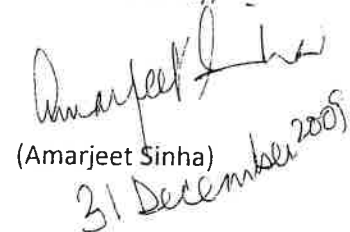 Amarjeet Sinha
(Amarjeet Sinha)
31 December 2009